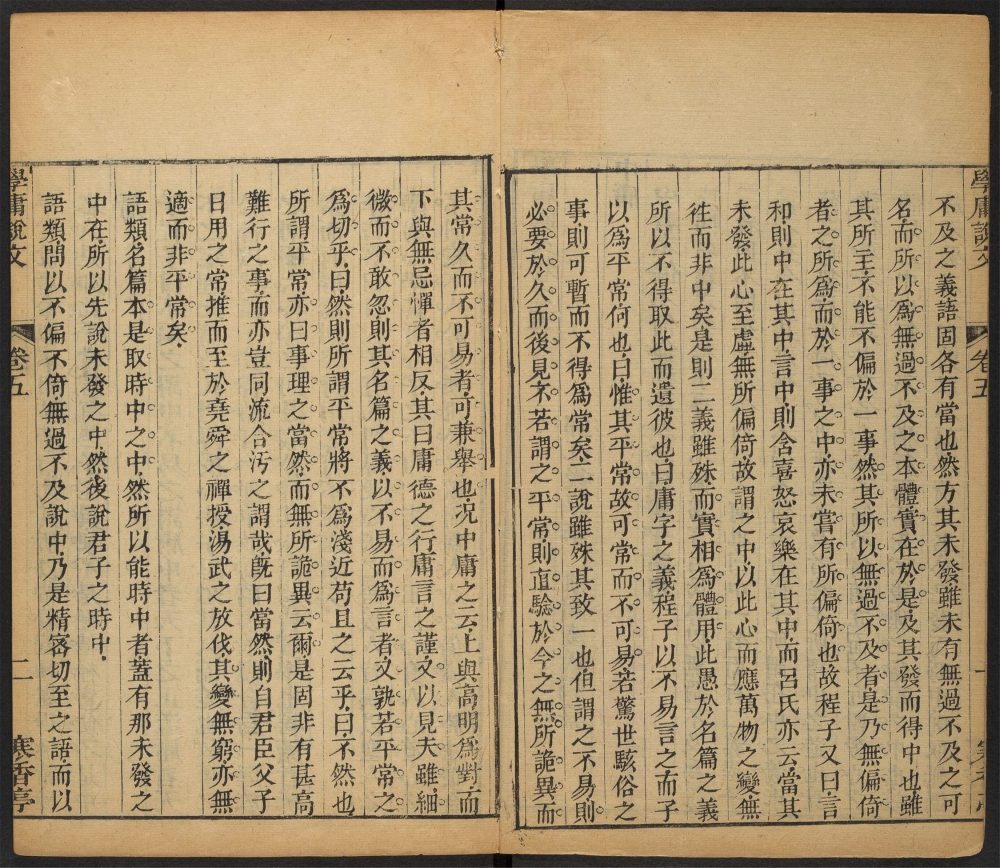 不及之義語固各有當也然方其未發雖未有無過不及之可
名而所以爲無過不及之本體實在於是及其發而得中也雖
其所主不能不偏於一事然其所以無過不及者是乃無偏倚
者之所爲而於一事之中亦未嘗有所偏倚也故程子又曰言
和則中在其中言中則含喜怒哀樂在其中而呂氏亦云當其
未發此心至虛無所偏倚故謂之中以此心而應萬物之變無
徃而非中矣是則二義雖殊而實相爲體用此愚於名篇之義
所以不得取此而遺彼也曰庸字之義程子以不易言之而子
以爲平常何也曰惟其平常故可常而不可易若驚世駭俗之
事則可暫而不得爲常矣二說雖殊其致一也但謂之不易則
必要於久而後見不若謂之平常則直驗於今之無所詭異而
學庸說文
卷五
一
其常久而不可易者可兼舉也况中庸之云上與高明爲對而
下與無忌憚者相反其曰庸德之行庸言之謹又以見夫雖細
微而不敢忽則其名篇之義以不易而爲言者又孰若平常之
爲切乎曰然則所謂平常將不爲淺近苟且之云乎曰不然也
所謂平常亦曰事理之當然而無所詭異云爾是固非有甚高
難行之事而亦豈同流合汚之謂哉旣曰當然則自君臣父子
日用之常推而至於堯舜之禪授湯武之放伐其變無窮亦無
適而非平常矣
語類名篇本是取時中之中然所以能時中者蓋有那未發之
中在所以先說未發之中然後說君子之時中
語類問以不偏不倚無過不及說中乃是精密切至之語而以
學庸說文
卷五
二
寒香亭